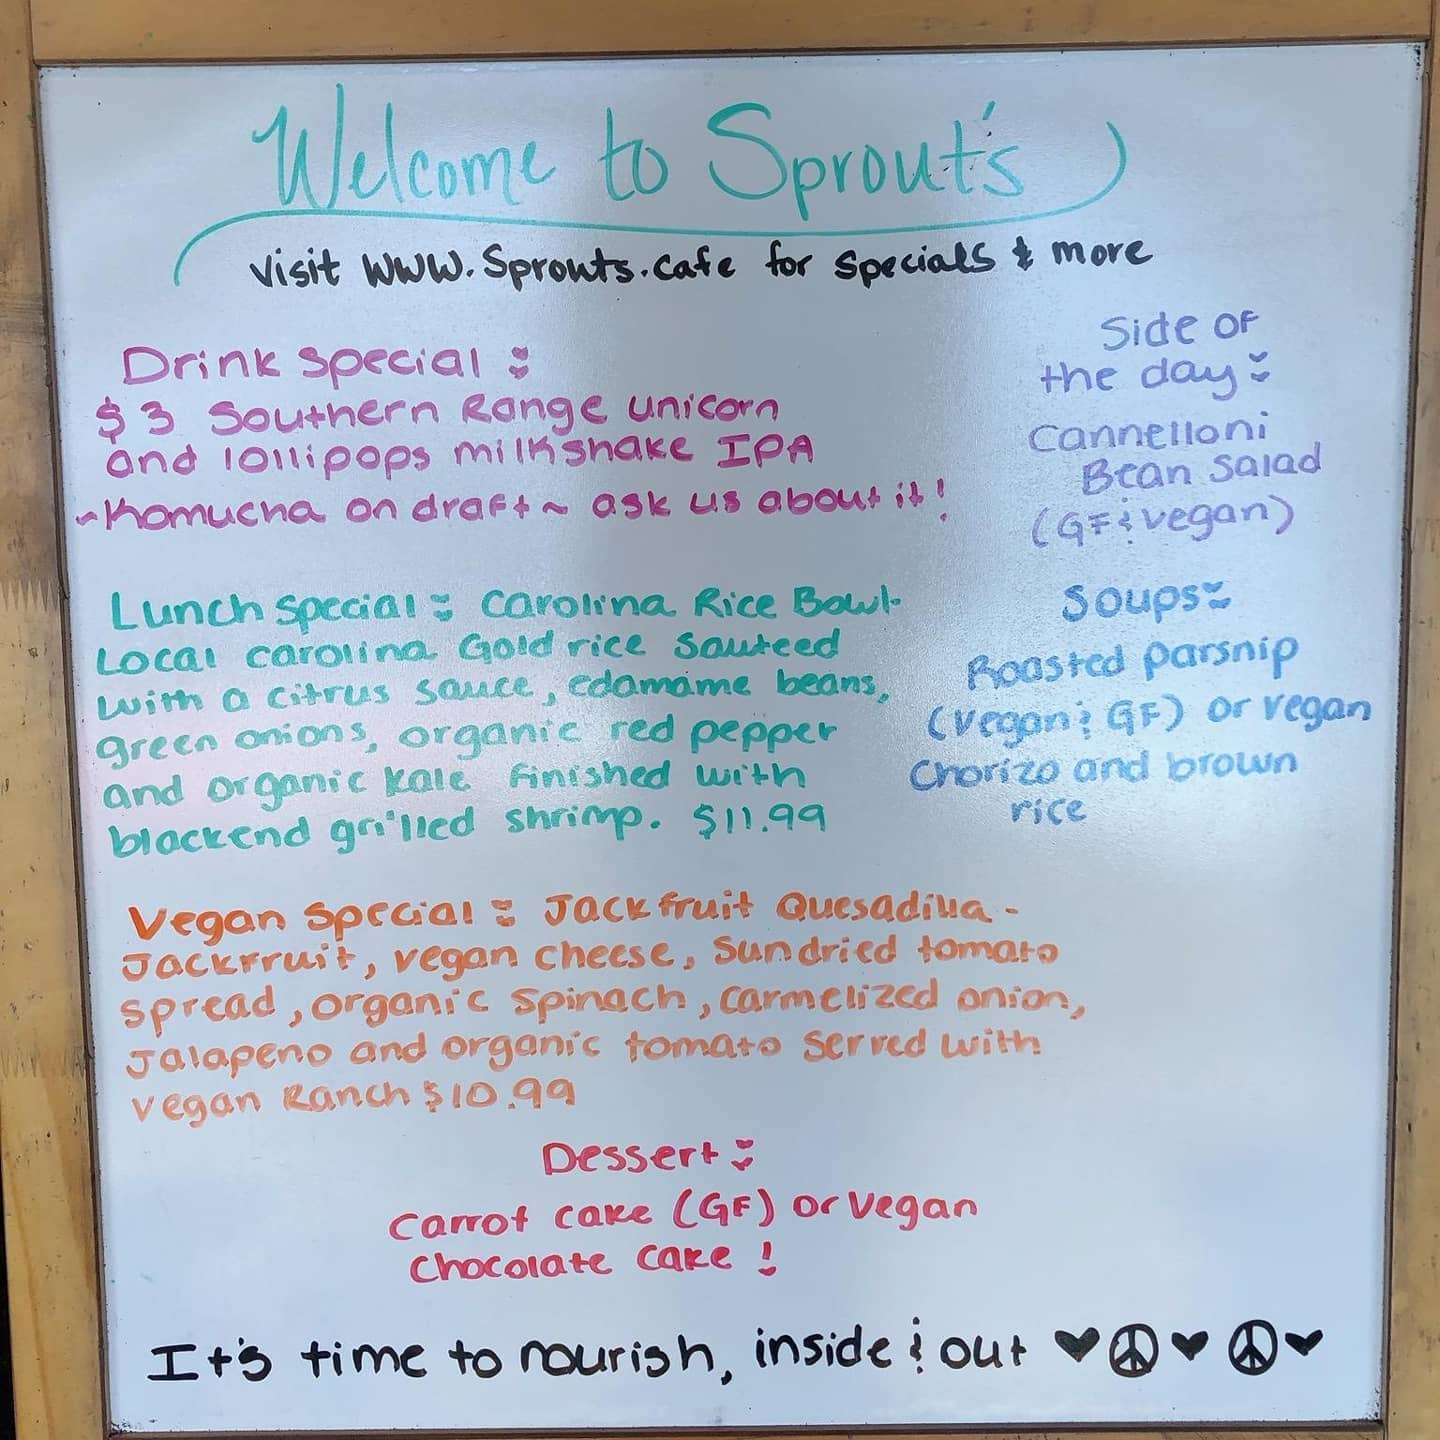 Welcome to Sprout's
Visit WWW.Sprouts.cafe for specials & more
Drink special:
$3 Southern Range unicorn
and lollipops milkshake IPA
~Komucha on draft~ ask us about it!
Side of
the day:
Cannelloni
Bean salad
(GF & vegan)
Lunch special: Carolina Rice Bowl-
Local carolina Gold rice sauteed
with a citrus sauce, edamame beans,
green onions, organic red pepper
and organic kale finished with
blackend grilled shrimp. $11.99
Soups:
Roasted parsnip
(vegan & GF) or vegan
Chorizo and brown
rice
Vegan special: Jackfruit Quesadilla -
Jackfruit, vegan cheese, sundried tomato
spread, organic spinach, carmelized onion,
Jalapeno and organic tomato served with
vegan Ranch $10.99
Dessert:
Carrot cake (GF) or Vegan
Chocolate cake!
It's time to nourish, inside & out ♥☮♥ ☮♥